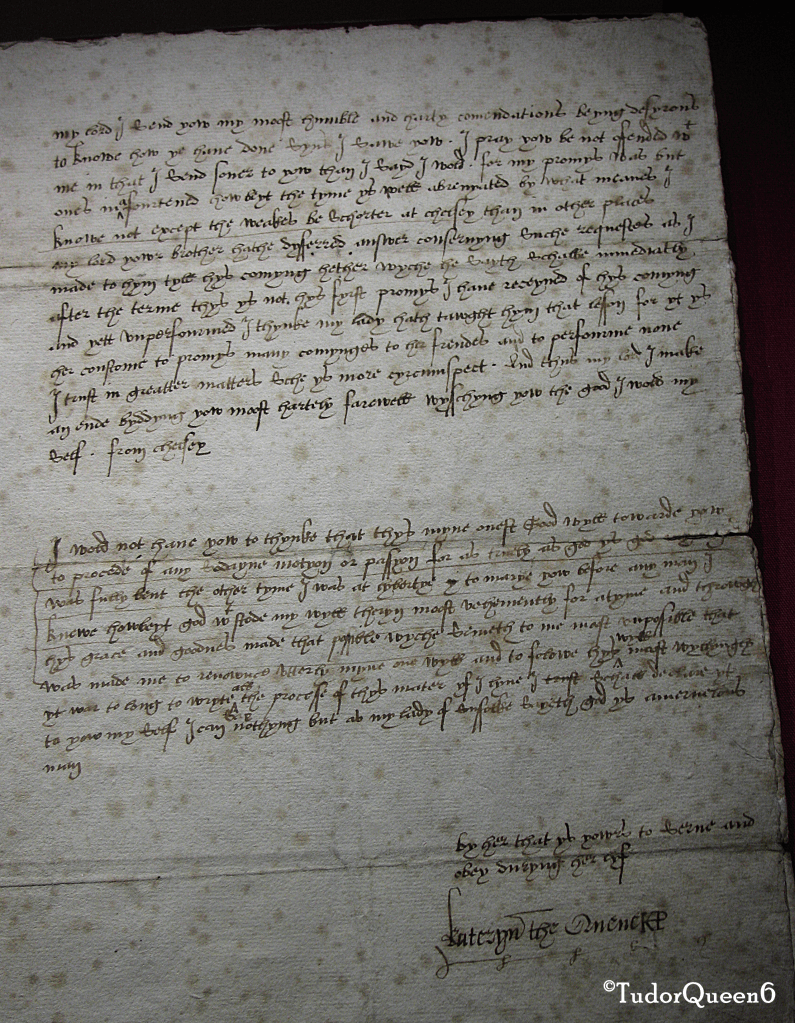 my lord I send yow my most humble and harty comendations beyng desyrous
to knowe how ye have done syns I sawe yow. I pray yow be not offended wt
me in that I send soner to yow than I sayd I wold. for my promys was but
ones in a fourtend howbeyt the tyme ys well abrevyated by what meanes I
knowe not except the weakes be schorter at chelsey than in other places
my lord yowr brother hathe dyfferred answer consernyng suche requestes as I
made to hym tyll hys comyng hether wyche he sayth schalbe immediatly
after the terme thys ys not hys fyrst promys I have receyved of hys comyng
and yett unperfourmed I thynke my lady hath tawght hym that lesson for yt ys
her custome to promys many comynges to her frendes and to perfourme none
I trust in greatter matters sche ys more cyrcumspect. And thus my lord I make
an ende byddyng yow most hartely farewell wysschyng yow the good I wold my
self. from chelsey
I wold not have yow to thynke that thys myne onest good wyll towarde yow
to procede of any sodayne motyon or passyon for as truely as god ys god my
was fully bent the other tyme I was at lybertye to marye yow before any man I
knowe howbeyt god wtstode my wyll theryn most vehemently for a tyme and through
hys grace and goodnes made that possible wyche semeth to me most unpossible that
was made me to renownce utterly myne owne wyll and to folowe hys wyll most wyllyngly
yt war to long to wryte all the processe of thys mater yf I lyve I trust schall declare yt
to yow my self I can say nothyng but as my lady of Suffolke sayeth god ys a mervelous
man
by her that ys yowrs to serve and
obey duryng her lyf
Kateryn the Quene KP
©TudorQueen6